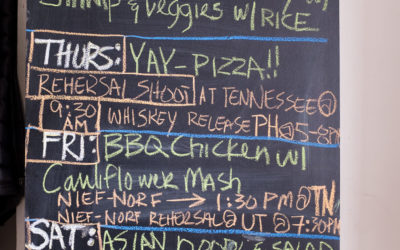 SHRIMP & VEGGIES W/ RICE
THURS: YAY-PIZZA!!
REHERSAL SHOOT AT TENNESSEE@
9:30 AM WHISKEY RELEASE PH@5-8PM
FRI: BBQ Chicken w/
Cauliflower Mash
NIEF-NORF → 1:30 PM @TN
NIEF-NORF REHERSAL@UT@7:30PM
SAT: ASIAN